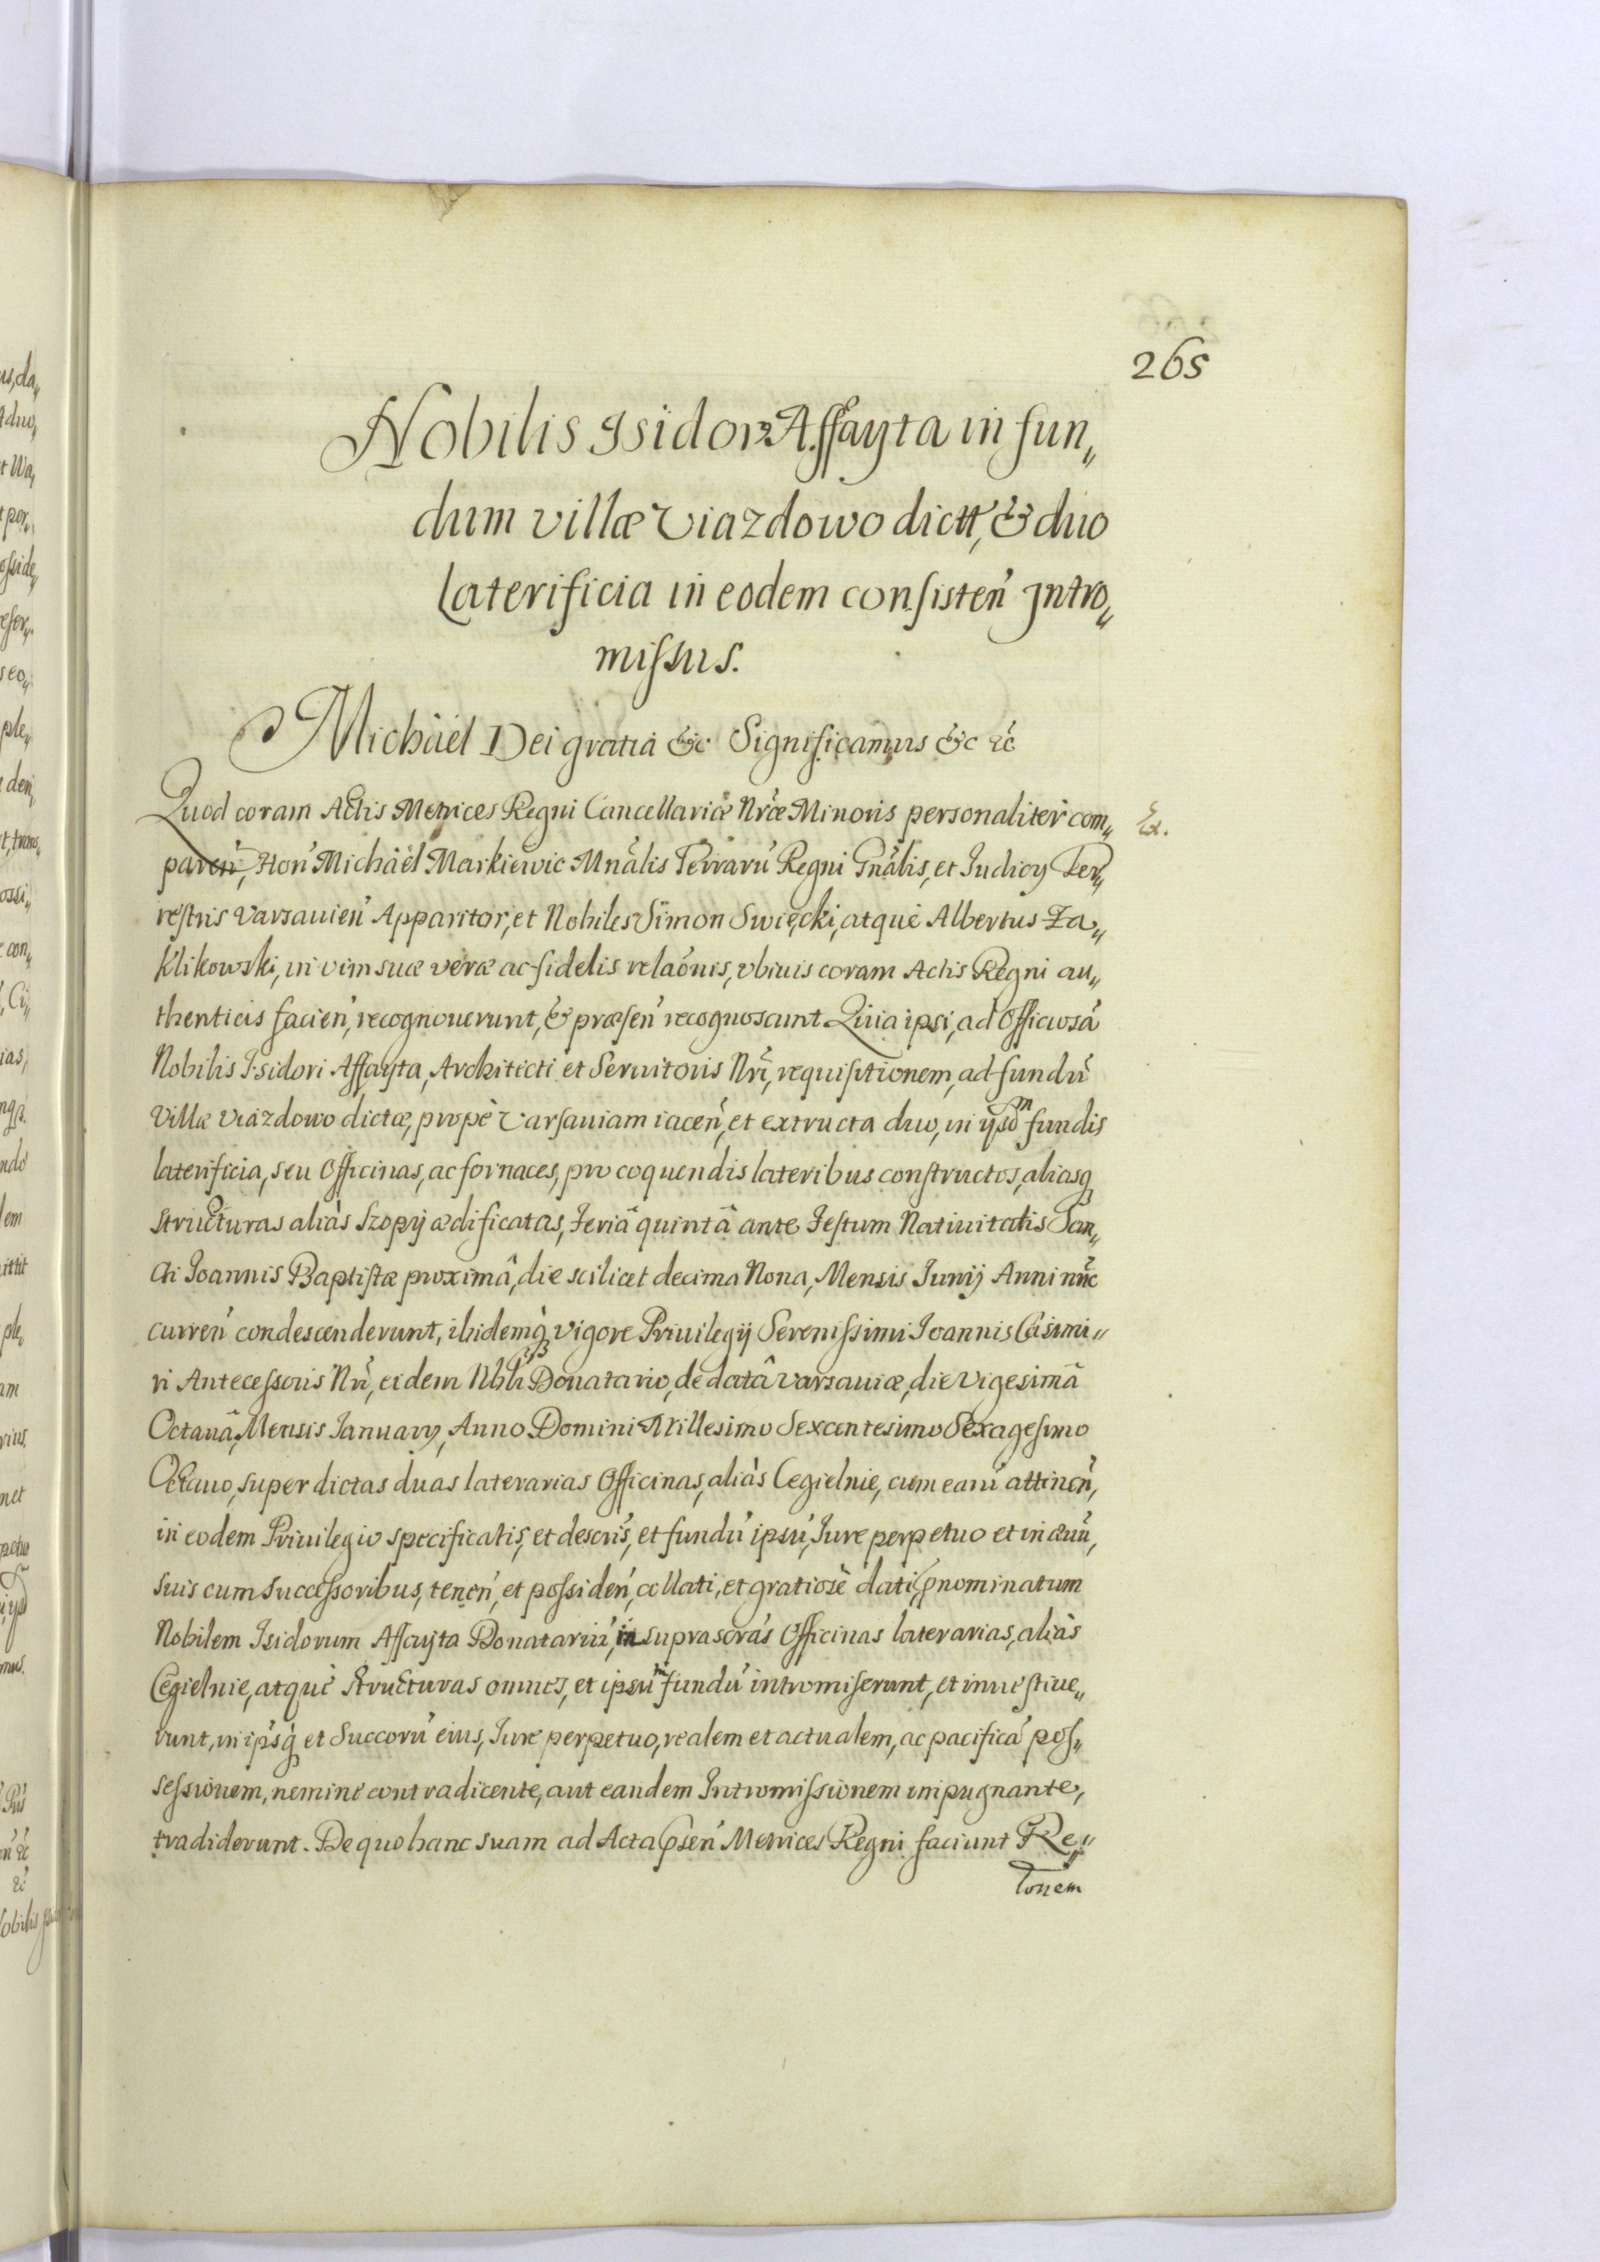 265
Nobilis Isidorꝫ Affayta in fun„
dum villæ Viazdowo dictt, & duo
Laterificia in eodem consisten̄ Intro„
missus.
Michäel Dei gratiâ &c Significamus &c &c̄
Quod coram Actis Metrices Regni Cancellariæ Nr̄æ Minoris personaliter com„ Ex.
paren̄, Hon̄ Michäel Markiewic Mnālis Terrarū Regni Gnālis, et Judicy Ter„
restris Varsauien̄ Apparitor, et Nobiles Simon Swięcki, atque Albertus Za„
Klikowski, in vim suæ veræ ac fidelis relaōnis, vbiuis coram Actis Regni au„
thenticis facien̄, recognouerunt, & præsen̄ recognoscunt Quia ipsi, ad Officiosā
Nobilis Isidori Affayta, Architicti et Seruitoris Nr̄i, requisitionem, ad fundū
Villæ Viazdowo dictæ, propè Varsauiam iacen̄, et extructa duo, in ijsdm̄ fundis
laterificia, seu Officinas, ac fornaces, pro coquendis lateribus constructos, aliasq
structuras aliàs Szopij ædificatas, Feriâ quintâ ante Festum Natiuitatis San„
cti Joannis Baptistæ proximâ, die scilicet decima Nona, Mensis Junij Anni nūc
curren̄ condescenderunt, ibidemq̄ vigore Priuilegij Serenissimi Joannis Casimi„
ri Antecessoris Nr̄i, eidem Nbli Donatario, de datâ Varsauiæ, die Vigesimâ
Octauâ, Mensis January, Anno Domini Millesimo Sexcentesimo Sexagesimo
Octauo, super dictas duas laterarias Officinas, aliàs Cegielnie, cum earū attinen̄,
in eodem Priuilegio specificatis, et descris̄, et fundū ipsū, Jure perpetuo et in æuū,
suis cum successoribus, tenen̄, et possiden̄, collati, et gratiosè dati, p̄nominatum
Nobilem Isidorum Affayta Donatariū, in suprascrās Officinas laterarias, aliàs
Cegielnie, atquè structuras omnes, et ipsum fundū intromiserunt, et inuestiue„
runt, in ips̄q̄ et Succorū eius, Jure perpetuo, realem et actualem, ac pacificā pos„
sessionem, nemine contradicente, aut eandem Intromissionem impugnante,
tradiderunt. De quo hanc suam ad Acta p̄sen̄ Metrices Regni faciunt Re„
lonem